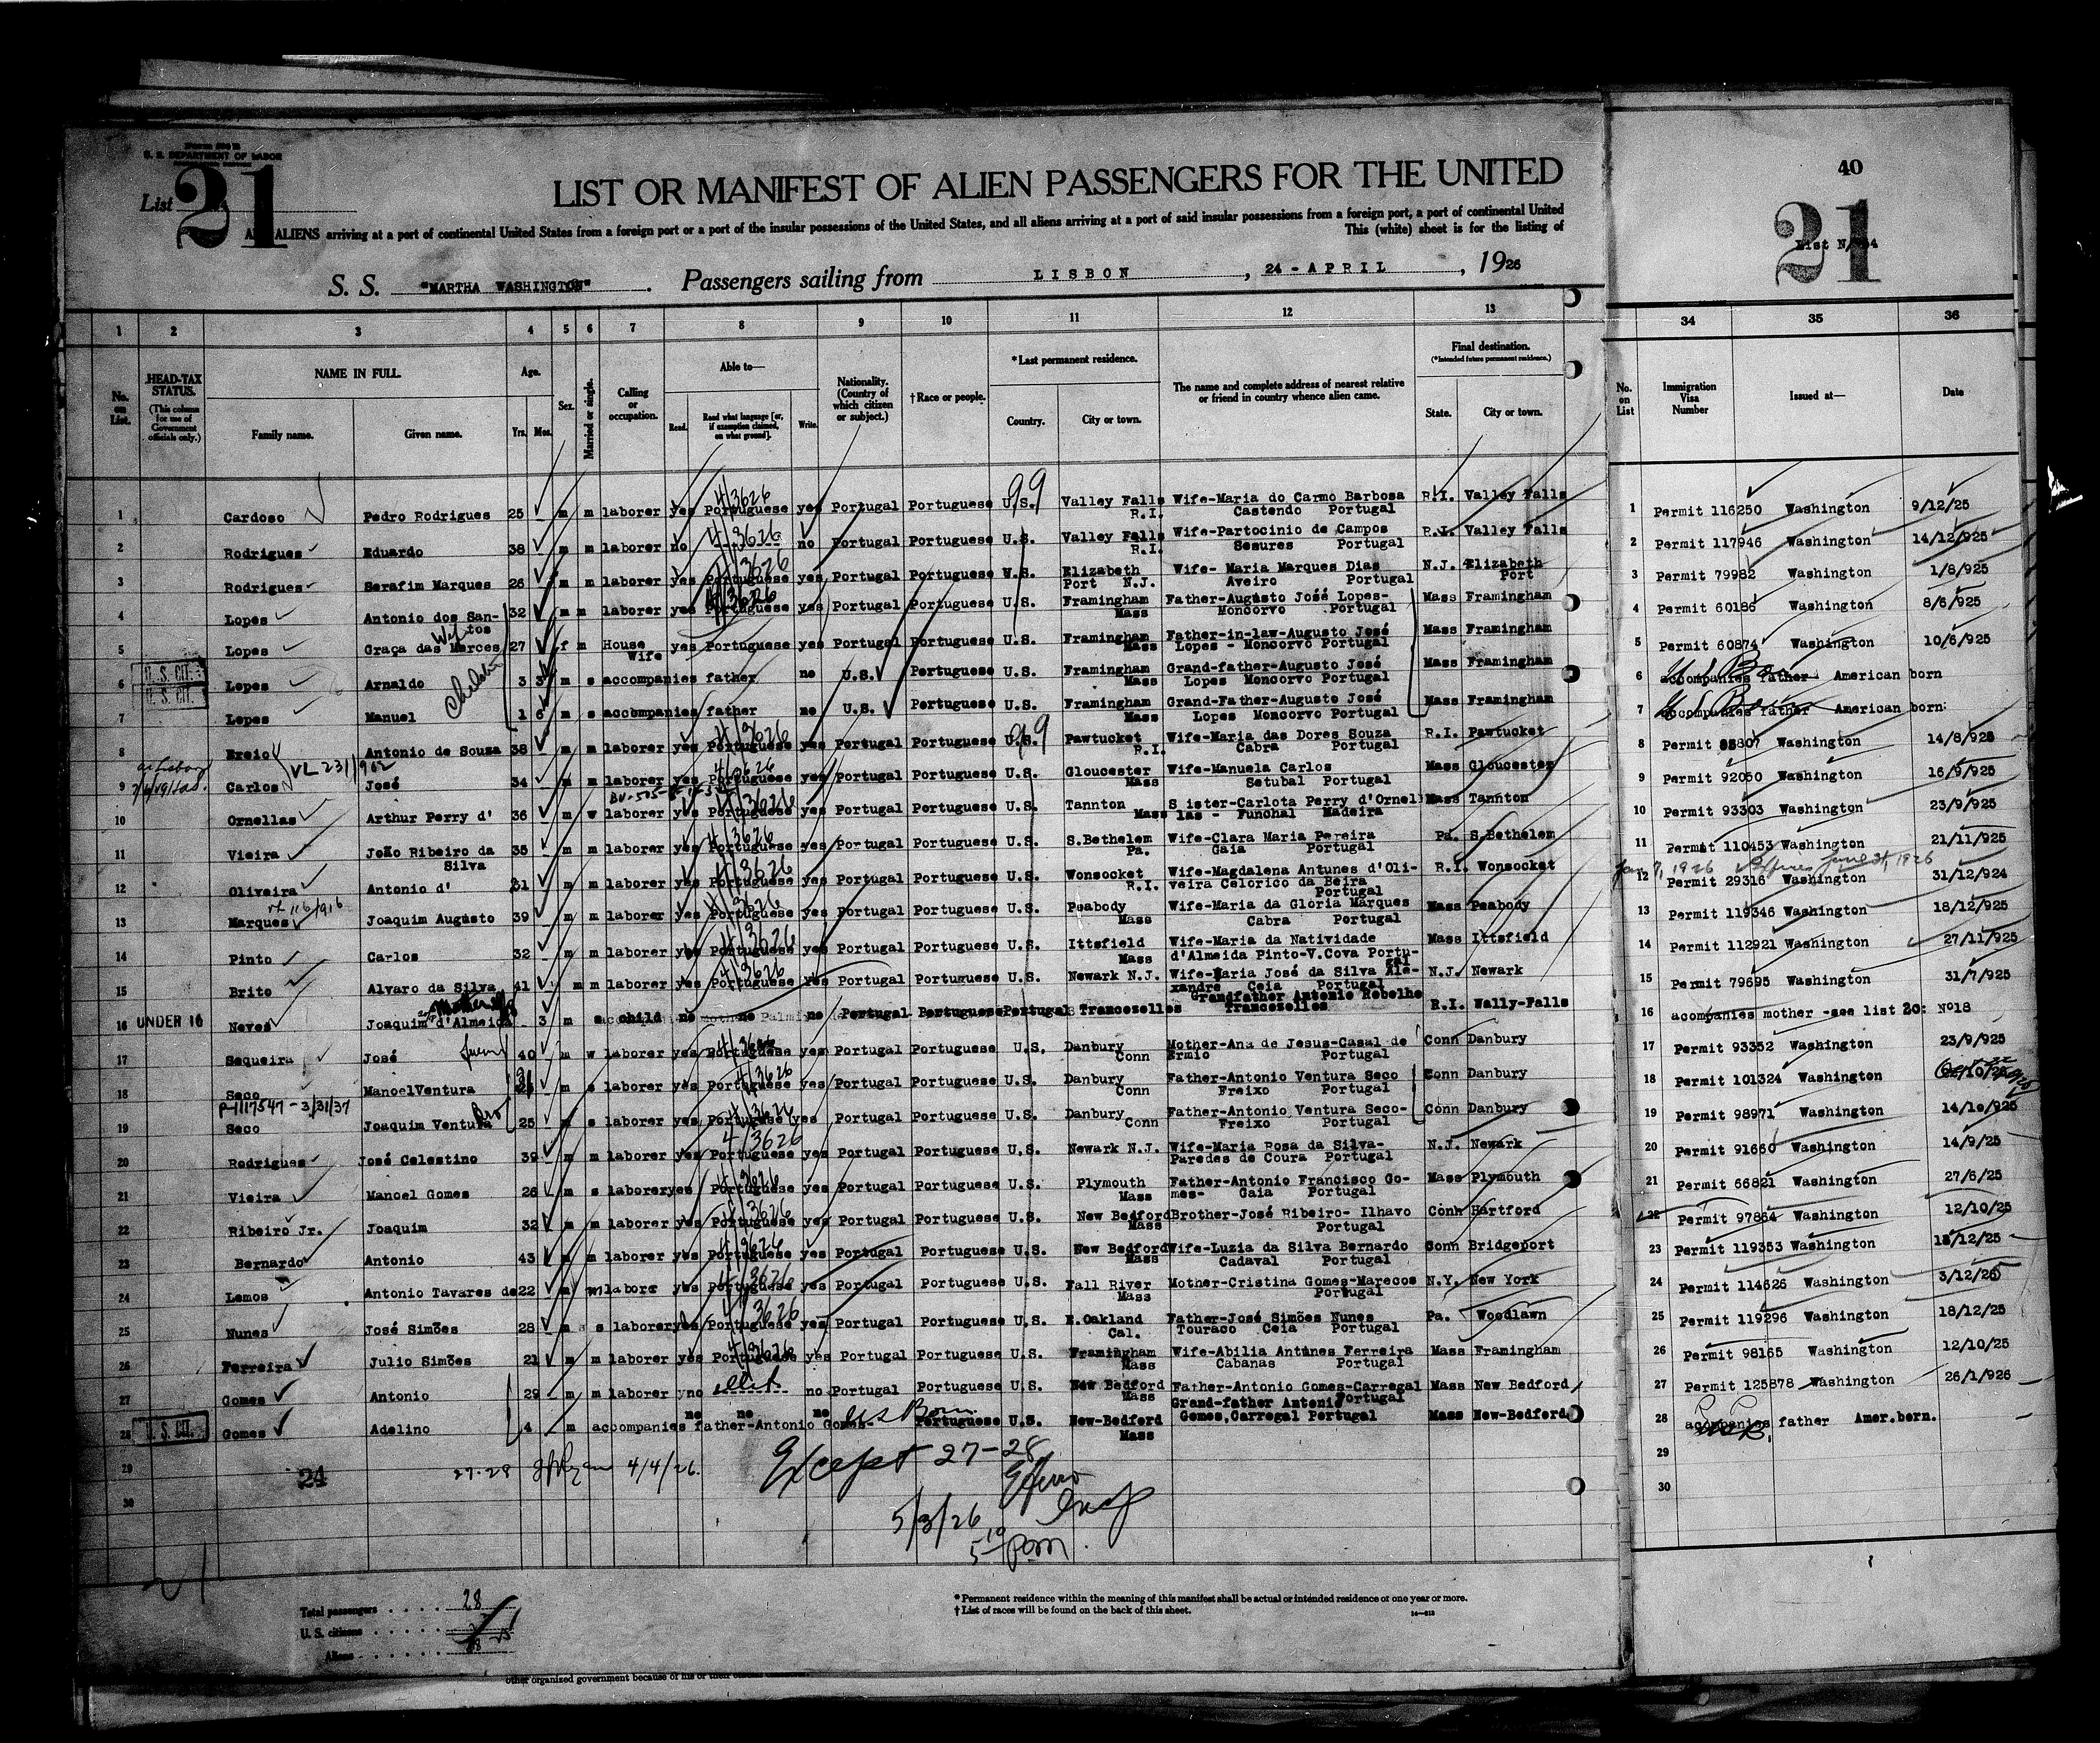 U. S. DEPARTMENT OF LABOR
List 21
40
21
LIST OR MANIFEST OF ALIEN PASSENGERS FOR THE UNITED
ALIENS arriving at a port of continental United States from a foreign port or a port of the insular possessions of the United States, and all aliens arriving at a port of said insular possessions from a foreign port, a port of continental United
This (white) sheet is for the listing of
S. S. "MARTHA WASHINGTON". Passengers sailing from LISBON, 24 - APRIL, 1926
1 2 3 4 5 6 7 8 9 10 11 12 13 34 35 36
No. on List. HEAD-TAX STATUS. (This column for use of Government officials only.) NAME IN FULL. Family name. Given name. Age. Yrs. Mos. Sex. Married or single. Calling or occupation. Able to— Read. Read what language [or, if exemption claimed, on what ground]. Write. Nationality. (Country of which citizen or subject.) †Race or people. *Last permanent residence. Country. City or town. The name and complete address of nearest relative or friend in country whence alien came. Final destination. (*Intended future permanent residence.) State. City or town. No. on List Immigration Visa Number Issued at— Date
1 Cardoso Pedro Rodrigues 25 m m laborer yes Portuguese yes Portugal Portuguese U.S. Valley Falls R.I. Wife-Maria do Carmo Barbosa Castendo Portugal R.I. Valley Falls 1 Permit 116250 Washington 9/12/25
2 Rodrigues Eduardo 38 m m laborer no no Portugal Portuguese U.S. Valley Falls R.I. Wife-Partocinio de Campos Sesures Portugal R.I. Valley Falls 2 Permit 117946 Washington 14/12/925
3 Rodrigues Serafim Marques 26 m m laborer yes Portuguese yes Portugal Portuguese U.S. Elizabeth Port N.J. Wife- Maria Marques Dias Aveiro Portugal N.J. Elizabeth Port 3 Permit 79982 Washington 1/8/925
4 Lopes Antonio dos San-tos 32 m m laborer yes Portuguese yes Portugal Portuguese U.S. Framingham Mass Father-Augusto José Lopes- Moncorvo Portugal Mass Framingham 4 Permit 60186 Washington 8/6/925
5 Lopes Graça das Merces Wife 27 f m House Wife yes Portuguese yes Portugal Portuguese U.S. Framingham Mass Father-in-law-Augusto José Lopes - Moncorvo Portugal Mass Framingham 5 Permit 60874 Washington 10/6/925
6 U. S. CIT. Lopes Arnaldo 3 3 m s accompanies father no U.S. Portuguese U.S. Framingham Mass Grand-father-Augusto José Lopes Moncorvo Portugal Mass Framingham 6 accompanies father American born
7 U. S. CIT. Lopes Manuel 1 6 m s accompanies father no U.S. Portuguese U.S. Framingham Mass Grand-Father-Augusto José Lopes Moncorvo Portugal Mass Framingham 7 accompanies father American born
8 Antonio de Souza 38 m m laborer yes Portuguese yes Portugal Portuguese U.S. Pawtucket R.I. Wife-Maria das Dores Souza Cabra Portugal R.I. Pawtucket 8 Permit Washington 14/8/925
9 Carlos José 34 m m laborer yes Portuguese yes Portugal Portuguese U.S. Gloucester Mass Wife-Manuela Carlos Setubal Portugal Mass Gloucester 9 Permit 92050 Washington 16/9/925
10 Ornellas Arthur Perry d' 36 m w laborer yes Portuguese yes Portugal Portuguese U.S. Tannton Mass Sister-Carlota Perry d'Ornellas - Funchal Madeira Mass Tannton 10 Permit 93303 Washington 23/9/925
11 Vieira João Ribeiro da Silva 35 m m laborer yes Portuguese yes Portugal Portuguese U.S. S.Bethelem Pa. Wife-Clara Maria Pereira Gaia Portugal Pa. S.Bethelem 11 Permit 110453 Washington 21/11/925
12 Oliveira Antonio d' 31 m m laborer yes Portuguese yes Portugal Portuguese U.S. Wonsocket R.I. Wife-Magdalena Antunes d'Oli-veira Celorico da Beira Portugal R.I. Wonsocket 12 Permit 29316 Washington 31/12/924
13 Marques Joaquim Augusto 39 m m laborer yes Portuguese yes Portugal Portuguese U.S. Peabody Mass Wife-Maria da Gloria Marques Cabra Portugal Mass Peabody 13 Permit 119346 Washington 18/12/925
14 Pinto Carlos 32 m m laborer yes Portuguese yes Portugal Portuguese U.S. Ittsfield Mass Wife-Maria da Natividade d'Almeida Pinto-V.Cova Portu-gal Mass Ittsfield 14 Permit 112921 Washington 27/11/925
15 Brito Alvaro da Silva 41 m m laborer yes Portuguese yes Portugal Portuguese U.S. Newark N.J. Wife-Maria José da Silva Ale-xandre Ceia Portugal N.J. Newark 15 Permit 79695 Washington 31/7/925
16 UNDER 16 Neves Joaquim d'Almeida 3 m s child no no no Portugal Portuguese Portugal Trancozelles Grandfather Antonio Rebelho Trancozelles R.I. Wally-Falls 16 acompanies mother -see list 20: Nº18
17 Sequeira José 40 m w laborer yes Portuguese yes Portugal Portuguese U.S. Danbury Conn Mother-Ana de Jesus-Casal de Ermio Portugal Conn Danbury 17 Permit 93352 Washington 23/9/925
18 Seco Manoel Ventura m s laborer yes Portuguese yes Portugal Portuguese U.S. Danbury Conn Father-Antonio Ventura Seco Freixo Portugal Conn Danbury 18 Permit 101324 Washington
19 Seco Joaquim Ventura 25 m s laborer yes Portuguese yes Portugal Portuguese U.S. Danbury Conn Father-Antonio Ventura Seco- Freixo Portugal Conn Danbury 19 Permit 98971 Washington 14/10/925
20 Rodrigues José Celestino 39 m m laborer yes Portuguese yes Portugal Portuguese U.S. Newark N.J. Wife-Maria Rosa da Silva- Paredes de Coura Portugal N.J. Newark 20 Permit 91660 Washington 14/9/25
21 Vieira Manoel Gomes 26 m s laborer yes Portuguese yes Portugal Portuguese U.S. Plymouth Mass Father-Antonio Francisco Go-mes- Gaia Portugal Mass Plymouth 21 Permit 66821 Washington 27/6/25
22 Ribeiro Jr. Joaquim 32 m m laborer yes Portuguese yes Portugal Portuguese U.S. New Bedford Mass Brother-José Ribeiro- Ilhavo Portugal Conn Hartford 22 Permit 97864 Washington 12/10/25
23 Bernardo Antonio 43 m m laborer yes Portuguese yes Portugal Portuguese U.S. New Bedford Mass Wife-Luzia da Silva Bernardo Cadaval Portugal Conn Bridgeport 23 Permit 119353 Washington 18/12/25
24 Lemos Antonio Tavares de 22 m m labore yes Portuguese yes Portugal Portuguese U.S. Fall River Mass Mother-Cristina Gomes-Marecos Portugal N.Y. New York 24 Permit 114626 Washington 3/12/25
25 Nunes José Simões 28 m s laborer yes Portuguese yes Portugal Portuguese U.S. E.Oakland Cal. Father-José Simões Nunes Touraco Ceia Portugal Pa. Woodlawn 25 Permit 119296 Washington 18/12/25
26 Ferreira Julio Simões 21 m m laborer yes Portuguese yes Portugal Portuguese U.S. Framingham Mass Wife-Abilia Antunes Ferreira Cabanas Portugal Mass Framingham 26 Permit 98165 Washington 12/10/25
27 Gomes Antonio 29 m m laborer no no Portugal Portuguese U.S. New Bedford Mass Father-Antonio Gomes-Carregal Portugal Mass New Bedford 27 Permit 125878 Washington 26/1/926
28 U. S. CIT. Gomes Adelino 4 m accompanies father-Antonio Gomes- no no no US Born Portuguese U.S. New-Bedford Mass Grand-father Antonio Gomes, Carregal Portugal Mass New-Bedford 28 acompanies father Amer.born.
29 24 27-28 4/4/26. Except 27-28 29
30 5/3/26 5 10 pm. 30
Total passengers . . . . 28
U. S. citizens . . . . .
Aliens . . . . . .
* Permanent residence within the meaning of this manifest shall be actual or intended residence of one year or more.
† List of races will be found on the back of this sheet.